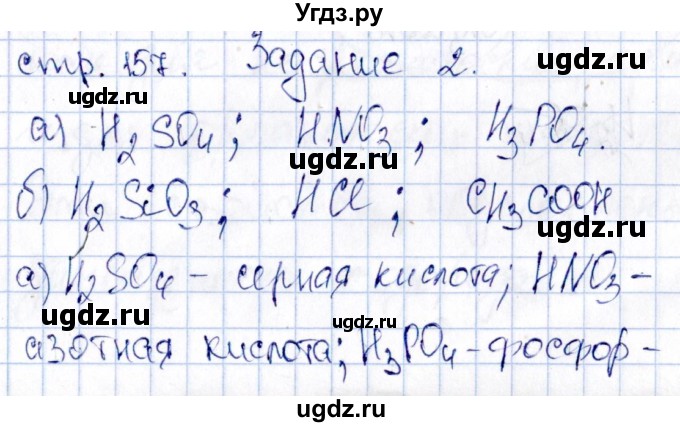 Угдз.ру
стр. 157. Задание 2.
ugdz.ru ugdz.ru
а) H2SO4; HNO3; H3PO4.
ugdz.ru
б) H2SiO3; HCl; CH3COOH
ugdz.ru ugdz.ru
а) H2SO4 – серная кислота; HNO3 –
ugdz.ru ugdz.ru ugdz.ru
азотная кислота; H3PO4 – фосфор –
ugdz.ru